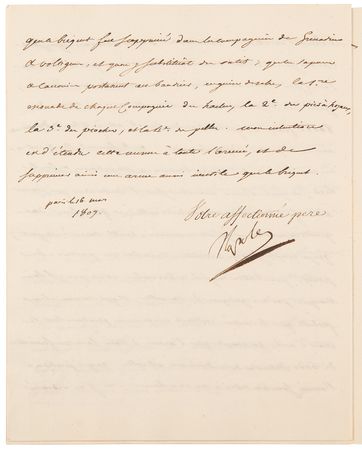 que le briquet fut supprimé dans les compagnies de Grenadiers
et voltigeurs, et qu'on y substituât des outils; que les sapeurs
a l'avenir portassent au baudrier, en guise de sabre, la 1re
escouade de chaque Compagnie des haches, la 2e des pics à hoyaux,
la 3e des pioches, et la 4e des pelles. mon intention
est d'étendre cette mesure à toute l'armée, et de
supprimer ainsi une arme aussi inutile que le briquet.
paris le 16 mars
1807.
Votre affectionné père